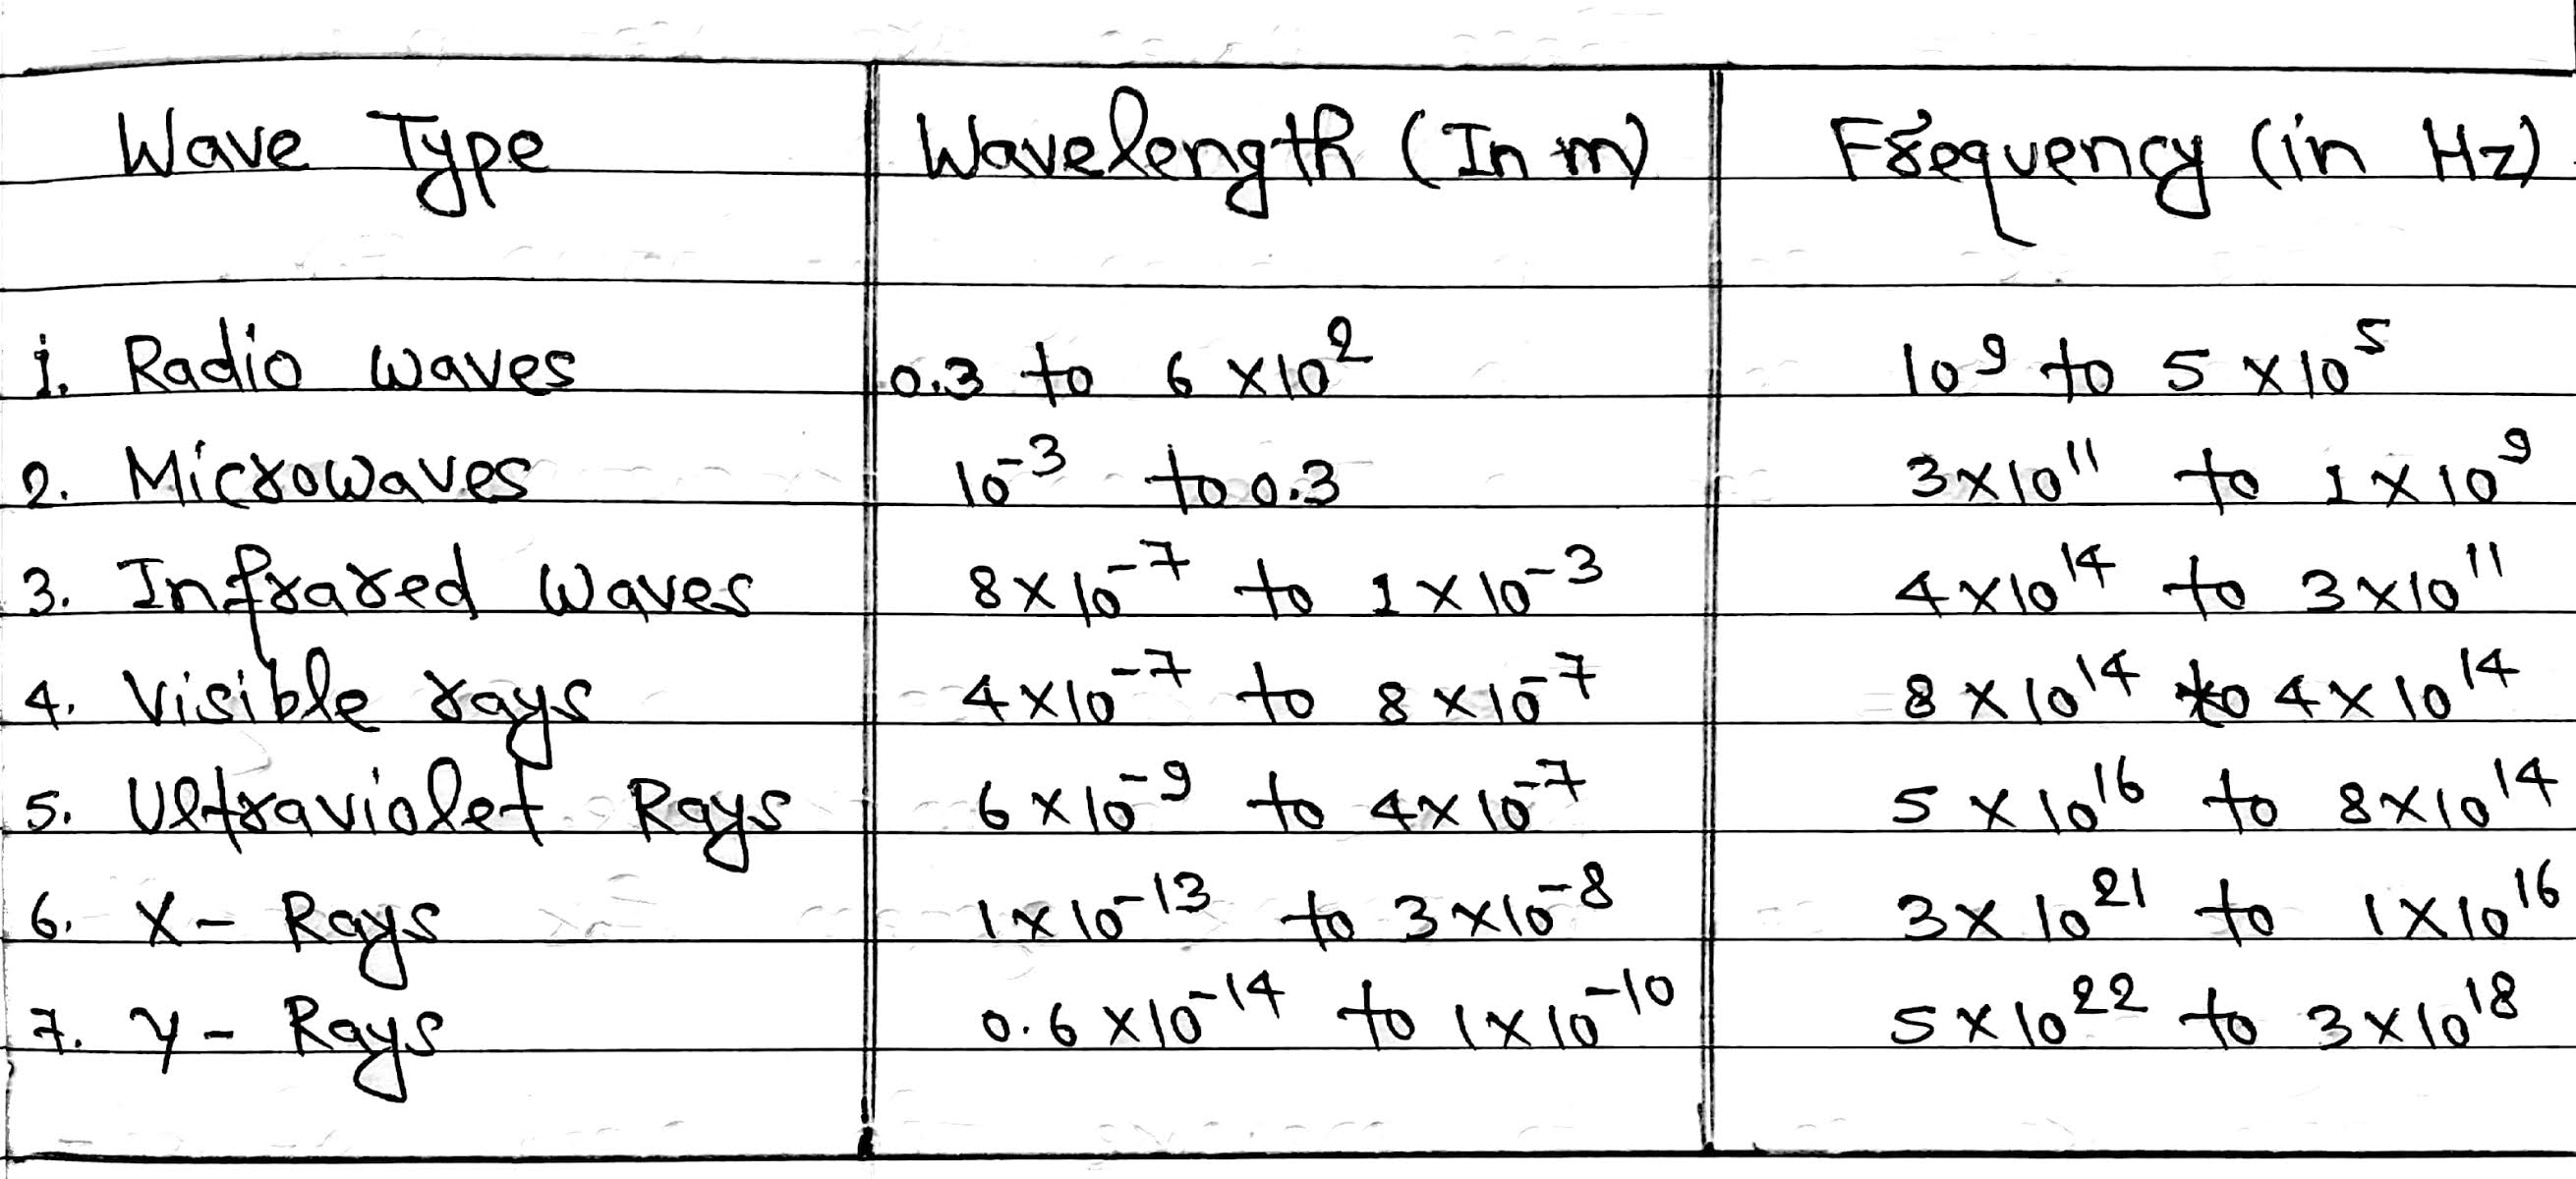 Wave Type Wavelength (In m) Frequency (in Hz)
1. Radio waves 0.3 to 6 × 10² 10⁹ to 5 × 10⁵
2. Microwaves 10⁻³ to 0.3 3 × 10¹¹ to 1 × 10⁹
3. Infrared Waves 8 × 10⁻⁷ to 1 × 10⁻³ 4 × 10¹⁴ to 3 × 10¹¹
4. Visible rays 4 × 10⁻⁷ to 8 × 10⁻⁷ 8 × 10¹⁴ to 4 × 10¹⁴
5. Ultraviolet Rays 6 × 10⁻⁹ to 4 × 10⁻⁷ 5 × 10¹⁶ to 8 × 10¹⁴
6. X - Rays 1 × 10⁻¹³ to 3 × 10⁻⁸ 3 × 10²¹ to 1 × 10¹⁶
7. γ - Rays 0.6 × 10⁻¹⁴ to 1 × 10⁻¹⁰ 5 × 10²² to 3 × 10¹⁸